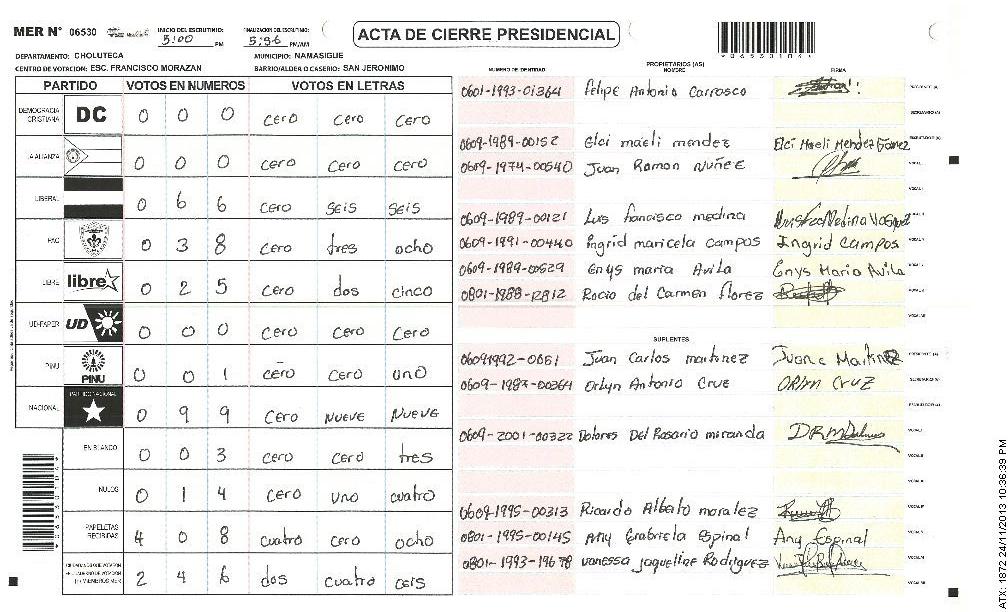 MER Nº 06530 INICIO DEL ESCRUTINIO: 5:00 PM FINALIZACION DEL ESCRUTINIO: 5:36 PM/AM
ACTA DE CIERRE PRESIDENCIAL
DEPARTAMENTO: CHOLUTECA MUNICIPIO: NAMASIGUE
CENTRO DE VOTACION: ESC. FRANCISCO MORAZAN BARRIO/ALDEA O CASERIO: SAN JERONIMO
PARTIDO VOTOS EN NUMEROS VOTOS EN LETRAS
DEMOCRACIA CRISTIANA DC 0 0 0 cero cero cero
LA ALIANZA 0 0 0 cero cero cero
LIBERAL 0 6 6 cero seis seis
PAC 0 3 8 cero tres ocho
LIBRE libre 0 2 5 cero dos cinco
UD-FAPER UD 0 0 0 cero cero cero
PINU PINU 0 0 1 cero cero uno
NACIONAL PARTIDO NACIONAL 0 9 9 cero nueve nueve
EN BLANCO 0 0 3 cero cero tres
NULOS 0 1 4 cero uno cuatro
PAPELETAS RECIBIDAS 4 0 8 cuatro cero ocho
2 4 6 dos cuatro ceis
NUMERO DE IDENTIDAD PROPIETARIOS (AS) NOMBRE FIRMA
0601-1993-01364 Felipe Antonio Carrasco
0609-1989-00152 Elci máeli mendez Elci Maeli Mendez Gómez
0609-1974-00540 Juan Ramon Nuñee
0609-1989-00121 Luis francisco medina
0609-1991-00440 ingrid maricela campos Ingrid Campos
0609-1989-00529 Enys maria Avila Enys Maria Avila
0801-1988-12812 Rocio del Carmen florez
SUPLENTES
06091992-0061 Juan Carlos martinez
0609-1983-00364 Orlyn Antonio Cruz
0609-2001-00322 Dolores Del Rosario miranda
0609-1995-00313 Ricardo Alberto moralez
0801-1995-00145 Any Grabriela Espinal Any Espinal
0801-1993-19678 vanessa jaqueline Rodriguez
ATX: 1872 24/11/2013 10:36:39 PM